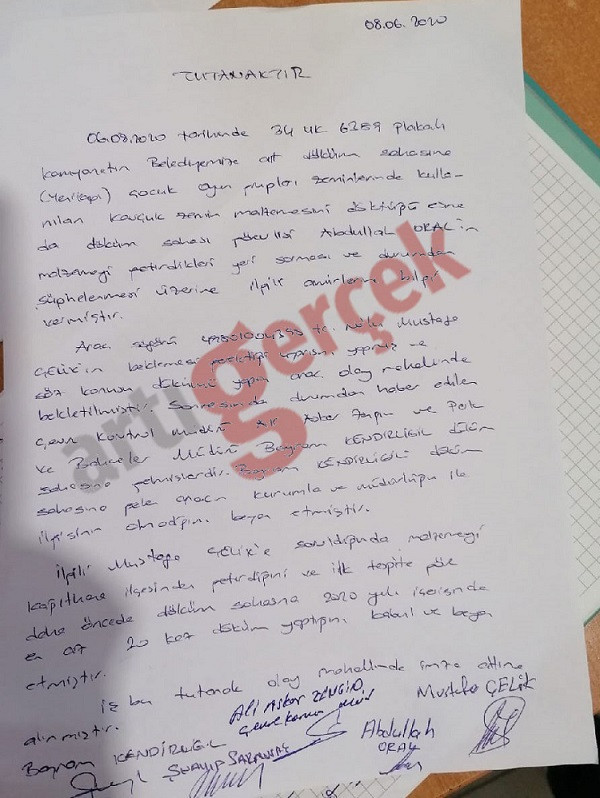 08.06.2020
TUTANAKTIR
06.08.2020 tarihinde 34 UK 6289 Plakalı
kamyonetin Belediyemize ait döküm sahasına
çocuk oyun grupları zeminlerinde kulla-
nılan kauçuk zemin malzemesini döktüğü esna
da döküm sahası görevlisi Abdullah ORAL'ın
malzemeyi getirdikleri yeri sorması ve durumdan
şüphelenmesi üzerine ilgili amirlerine bilgi
vermiştir.
Araç Mustafa
ÇELİK'in beklemesi gerektiği uyarısını yapmış ve
söz konusu dökümü yapan araç olay mahalinde
bekletilmiştir. Sonrasında durumdan haber edilen
Çevre Kontrol müdürü ve Park
ve Bahçeler Müdürü Bayram KENDİRLİGİL döküm
sahasına gelmişlerdir. Bayram KENDİRLİGİL döküm
sahasına gelen aracın kurumla ve müdürlüğü ile
ilgisinin olmadığını beyan etmiştir.
İlgili Mustafa ÇELİK'e sorulduğunda malzemeyi
Kağıthane ilçesinden getirdiğini ve ilk tespite göre
daha öncede döküm sahasına 2020 yılı içerisinde
en az 20 kez döküm yaptığını kabul ve beyan
etmiştir.
İş bu tutanak olay mahallinde imza altına
alınmıştır.
Ali Asker ZENGİN
Mustafa ÇELİK
Bayram KENDİRLİGİL
Abdullah
ORAL
artı gerçek